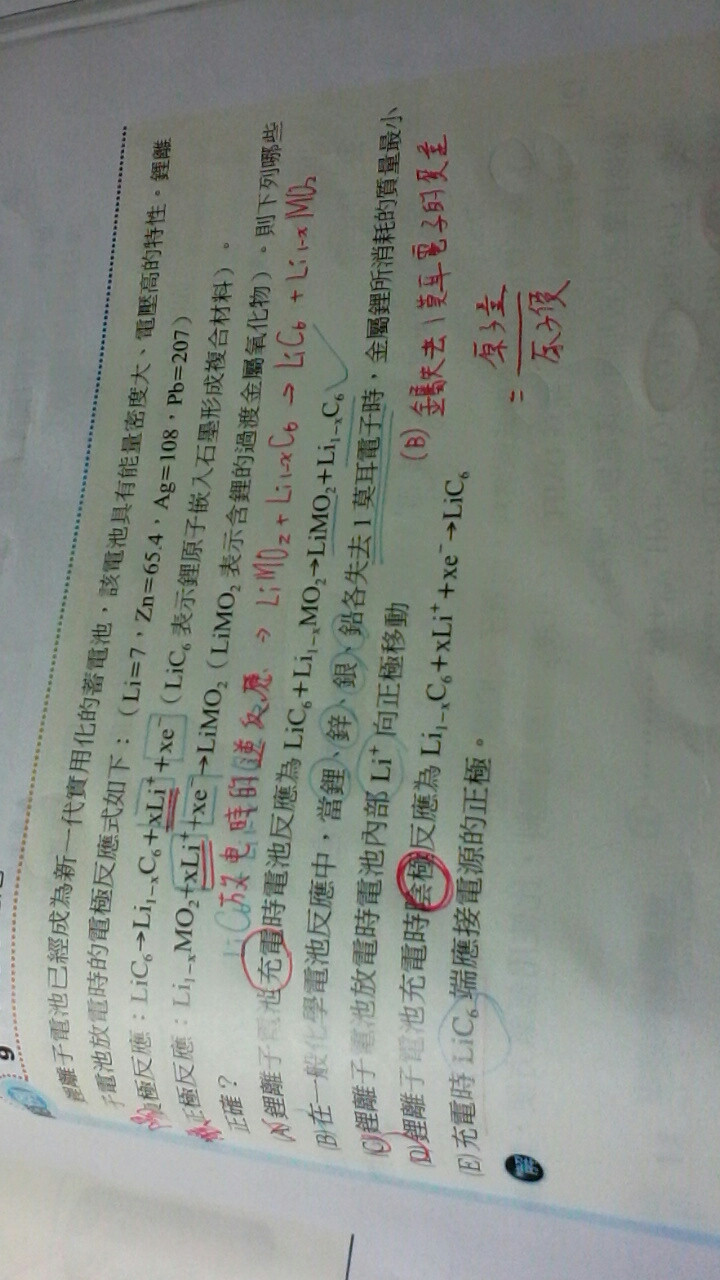 9
鋰離子電池已經成為新一代實用化的蓄電池，該電池具有能量密度大、電壓高的特性。鋰離
子電池放電時的電極反應式如下：（Li=7，Zn=65.4，Ag=108，Pb=207）
負極反應：LiC₆→Li₁₋ₓC₆+xLi⁺+xe⁻（LiC₆ 表示鋰原子嵌入石墨形成複合材料）
正極反應：Li₁₋ₓMO₂+xLi⁺+xe⁻→LiMO₂（LiMO₂ 表示含鋰的過渡金屬氧化物）。則下列哪些
正確？
放電時的逆反應 → LiMO₂ + Li₁₋ₓC₆ → LiC₆ + Li₁₋ₓMO₂
(A)鋰離子電池充電時電池反應為 LiC₆+Li₁₋ₓMO₂→LiMO₂+Li₁₋ₓC₆
(B)在一般化學電池反應中，當鋰、鋅、銀、鉛各失去1莫耳電子時，金屬鋰所消耗的質量最小
(C)鋰離子電池放電時電池內部 Li⁺ 向正極移動
(D)鋰離子電池充電時陰極反應為 Li₁₋ₓC₆+xLi⁺+xe⁻→LiC₆
(E)充電時 LiC₆ 端應接電源的正極。
(B) 金屬失去1莫耳電子的質量
= 原子量
原子價
解